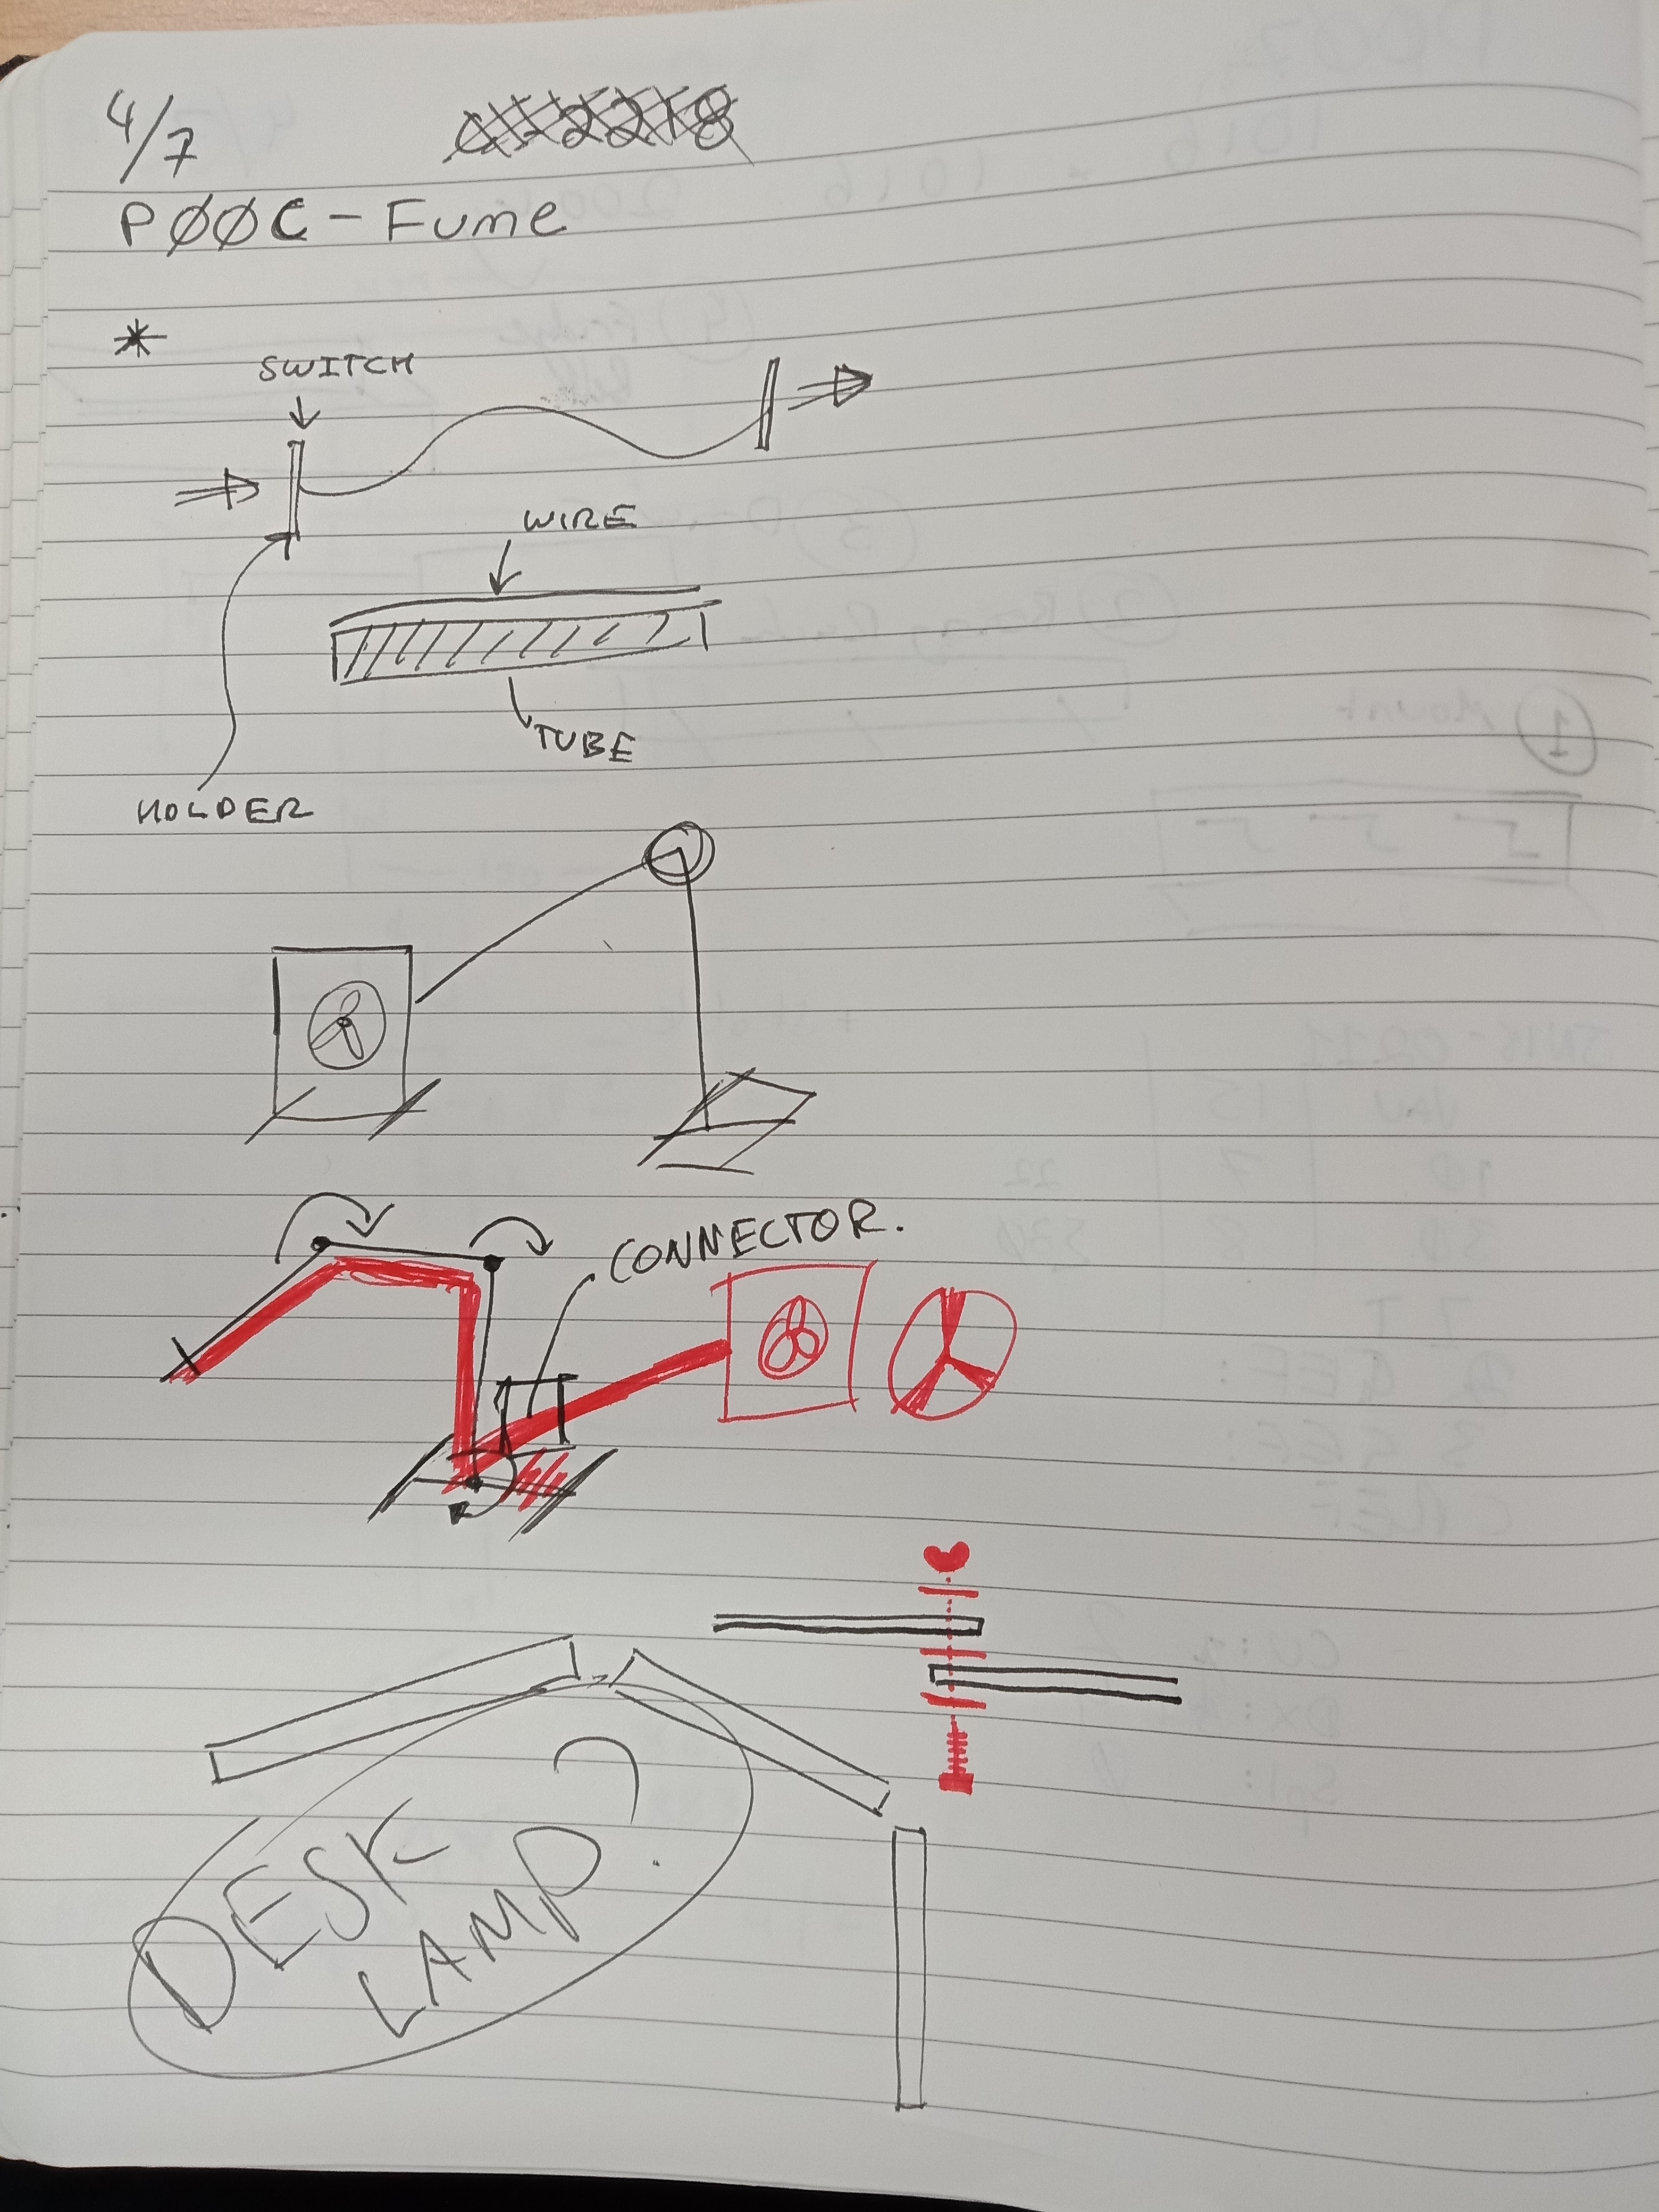 4/7
PØØC - Fume
*
SWITCH
WIRE
TUBE
HOLDER
CONNECTOR.
DESK
LAMP?